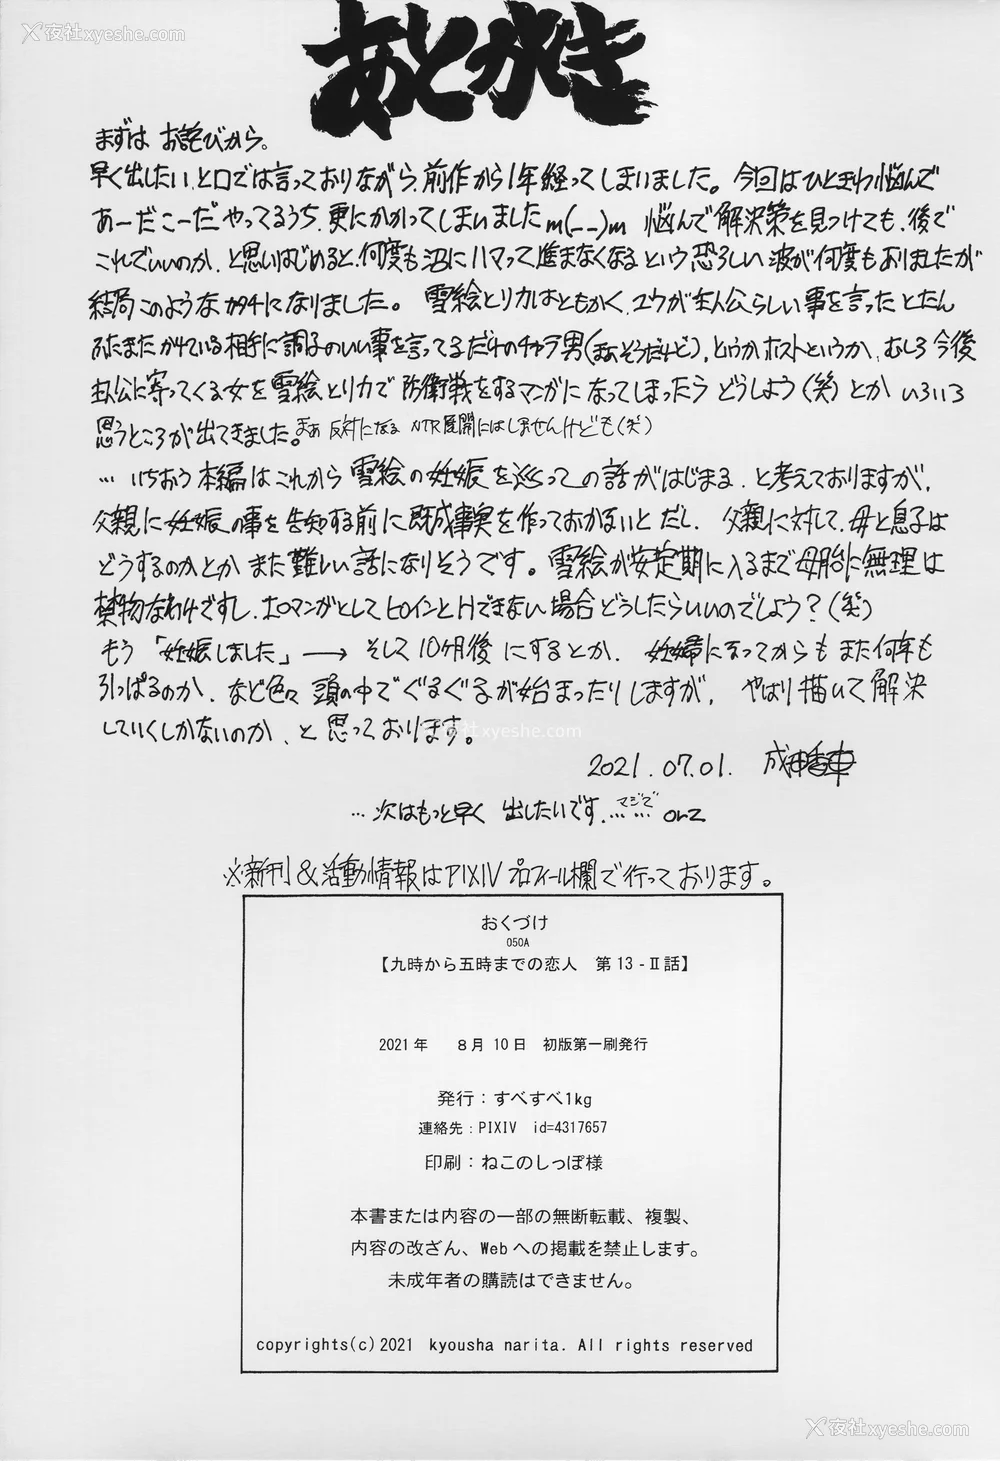 夜社xyeshe.com
あとがき
まずは お詫びから。
早く出したい、と口では言っておりながら、前作から1年経ってしまいました。今回はひときわ悩んで
あーだこーだ やってるうち、更にかかってしまいましたm(__)m 悩んで解決策を見つけても、後で
これでいいのか、と思いはじめると、何度も沼にハマって進まなくなるという恐ろしい波が何度もありましたが
結局このようなカタチになりました。 雪絵とリカはともかく、ユウが主人公らしい事を言ったとたん
ふたまたかけている相手に調子のいい事を言ってるだけのチャラ男(まあそうだけど)、というかホストというか、むしろ今後
主人公に寄ってくる女を雪絵とリカで防衛戦をするマンガになってしまったらどうしよう(笑)とか いろいろ
思うところが出てきました。まあ 反対になる NTR展開にはしませんけども(笑)
… いちおう本編はこれから雪絵の妊娠を巡っての話がはじまる、と考えておりますが、
父親に妊娠の事を告知する前に既成事実を作っておかないとだし、父親に対して、母と息子は
どうするのかとか また難しい話になりそうです。雪絵が安定期に入るまで母胎に無理は
禁物なわけですし、エロマンガとしてヒロインとHできない場合どうしたらいいのでしょう?(笑)
もう「妊娠しました」→ そして10ヶ月後 にするとか、妊婦になってからもまた何年も
引っぱるのか、など色々 頭の中でぐるぐるが始まったりしますが、やはり描いて解決
していくしかないのか、と思っております。
夜社xyeshe.com
2021.07.01. 成田香車
… 次はもっと早く 出したいです、マジで……orz
※新刊&活動情報はPIXIVプロフィール欄で行っております。
おくづけ
050A
【九時から五時までの恋人 第13-Ⅱ話】
2021年 8月10日 初版第一刷発行
発行：すべすべ1kg
連絡先：PIXIV id=4317657
印刷：ねこのしっぽ様
本書または内容の一部の無断転載、複製、
内容の改ざん、Webへの掲載を禁止します。
未成年者の購読はできません。
copyrights(c)2021 kyousha narita. All rights reserved
夜社xyeshe.com